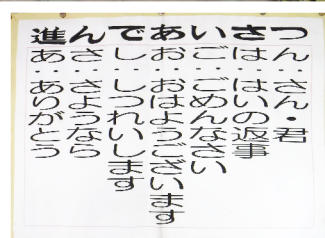 進んであいさつ
ん‥さん・君
は‥はいの返事
ご‥ごめんなさい
お‥おはようございます
し‥しつれいします
さ‥さようなら
あ‥ありがとう